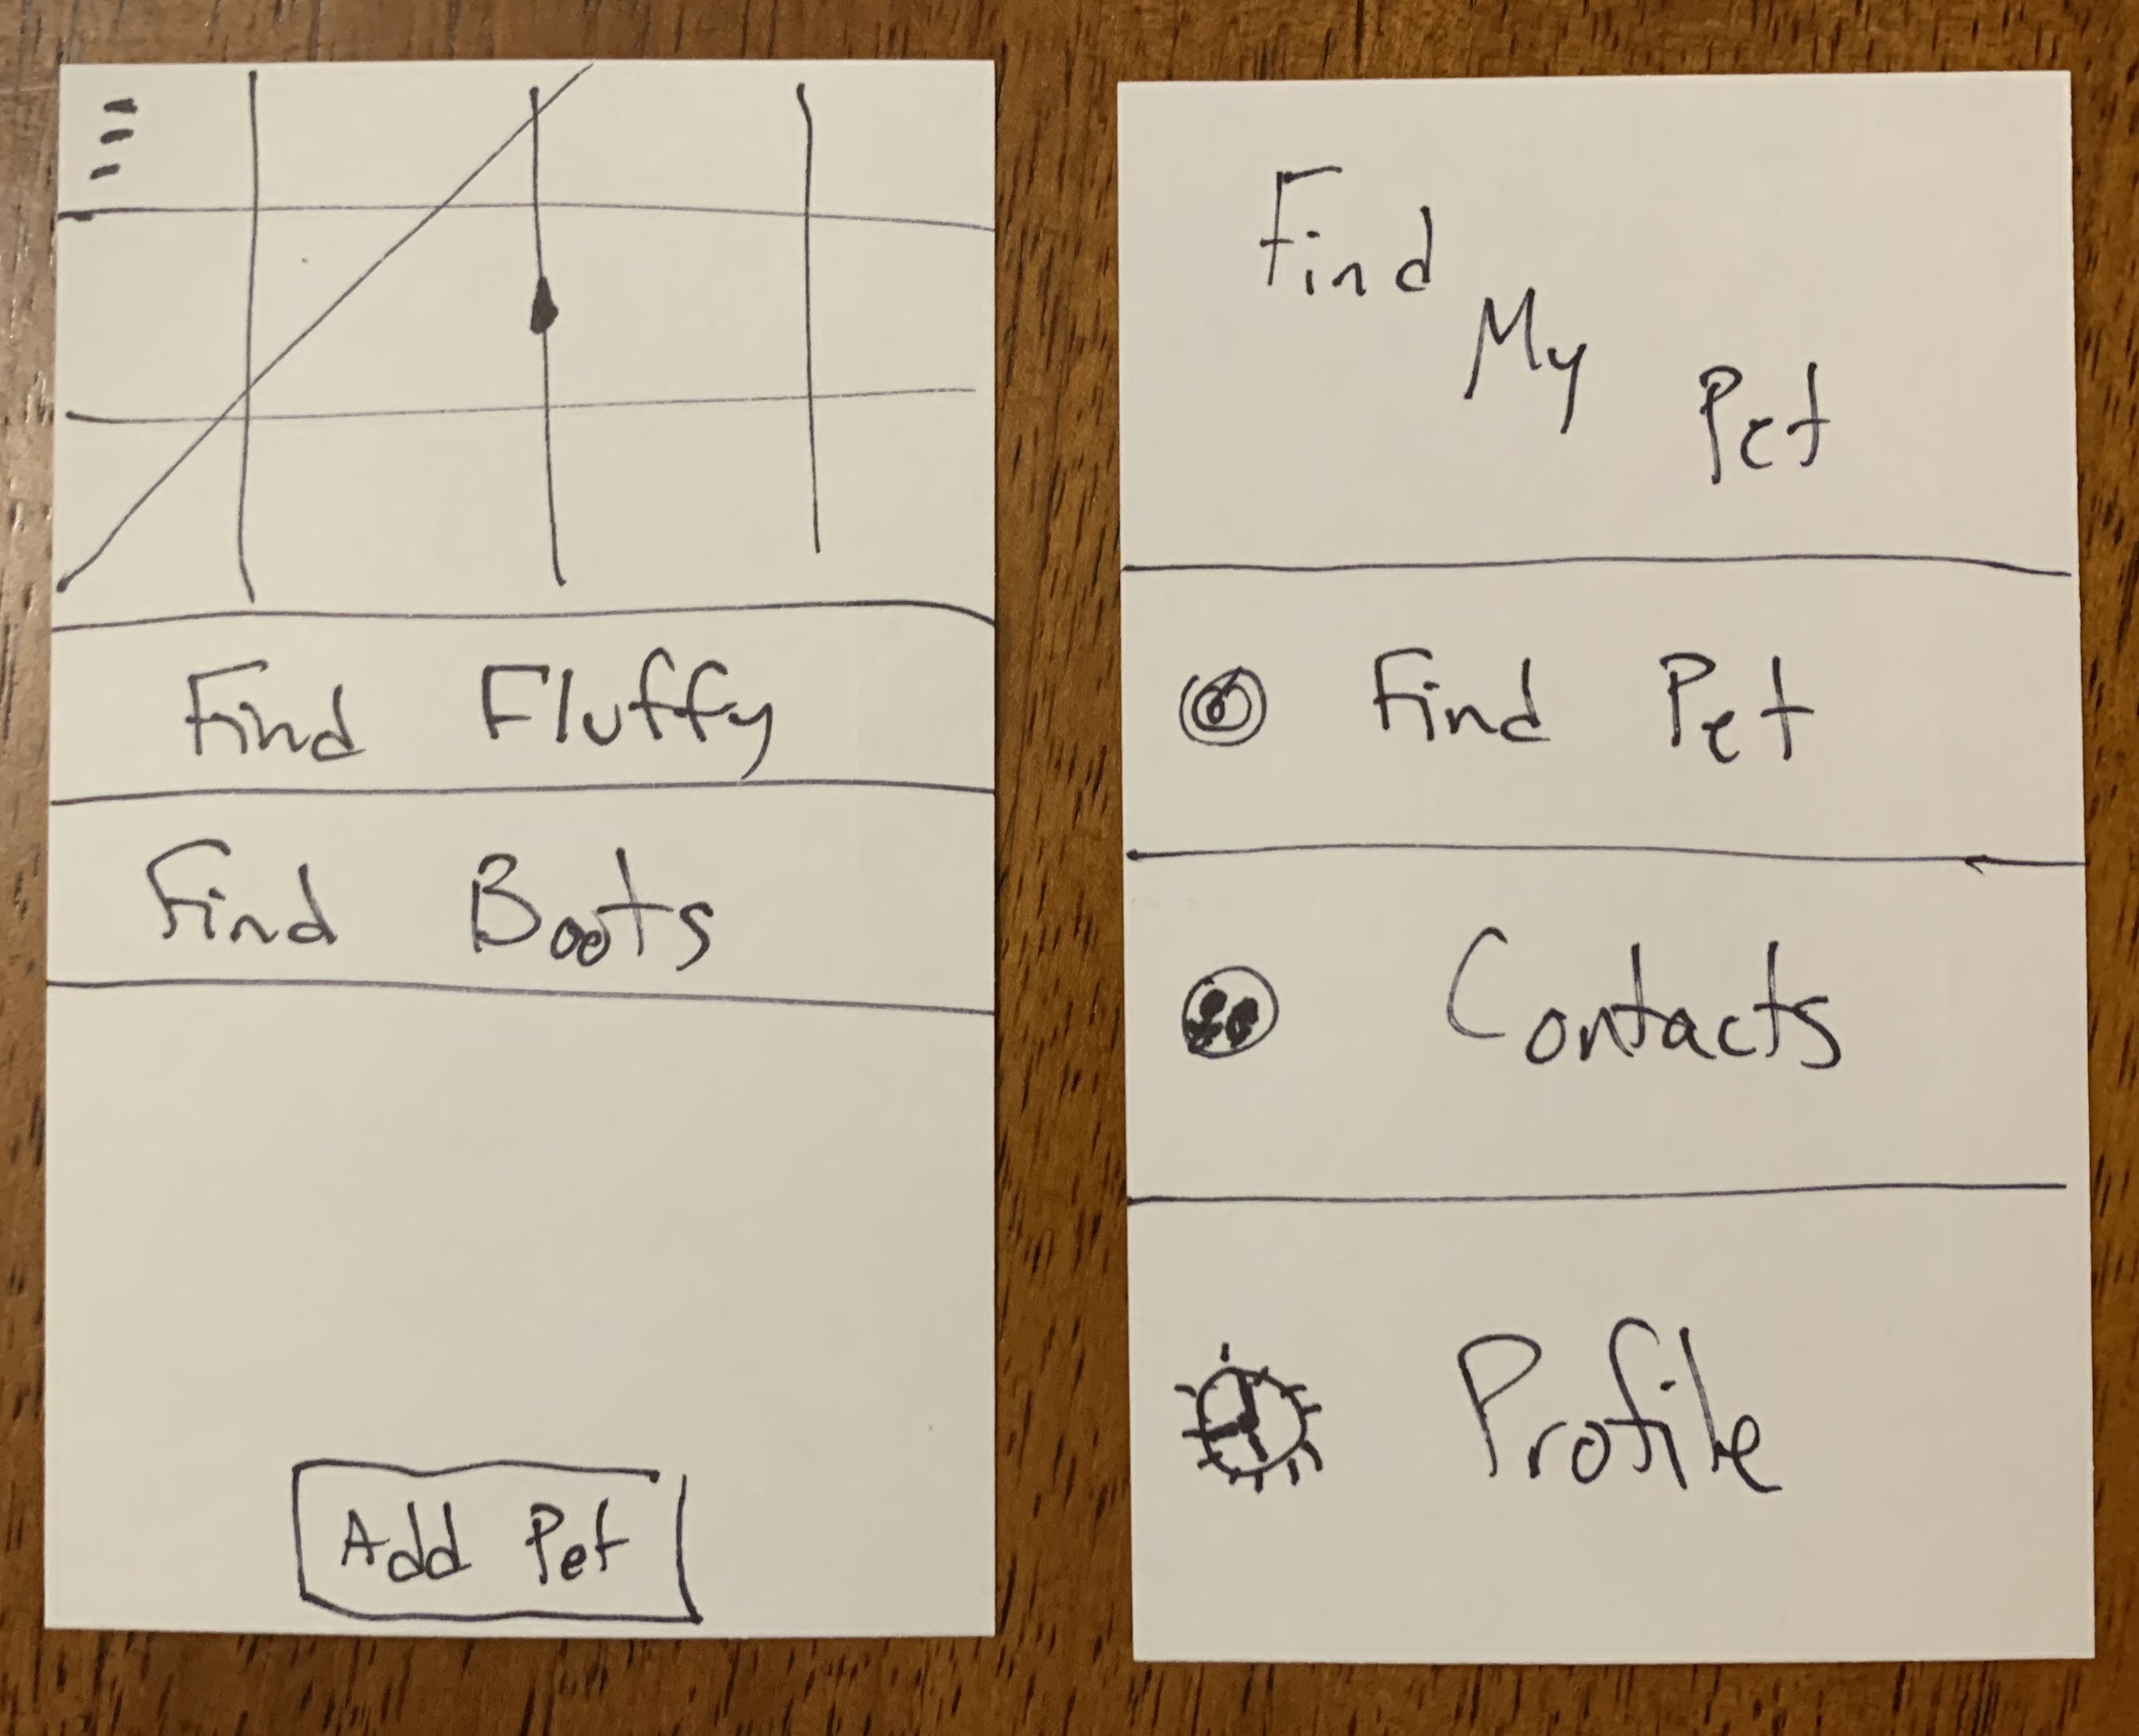 Find Fluffy
Find Boots
Add Pet
Find
My
Pet
Find Pet
Contacts
Profile